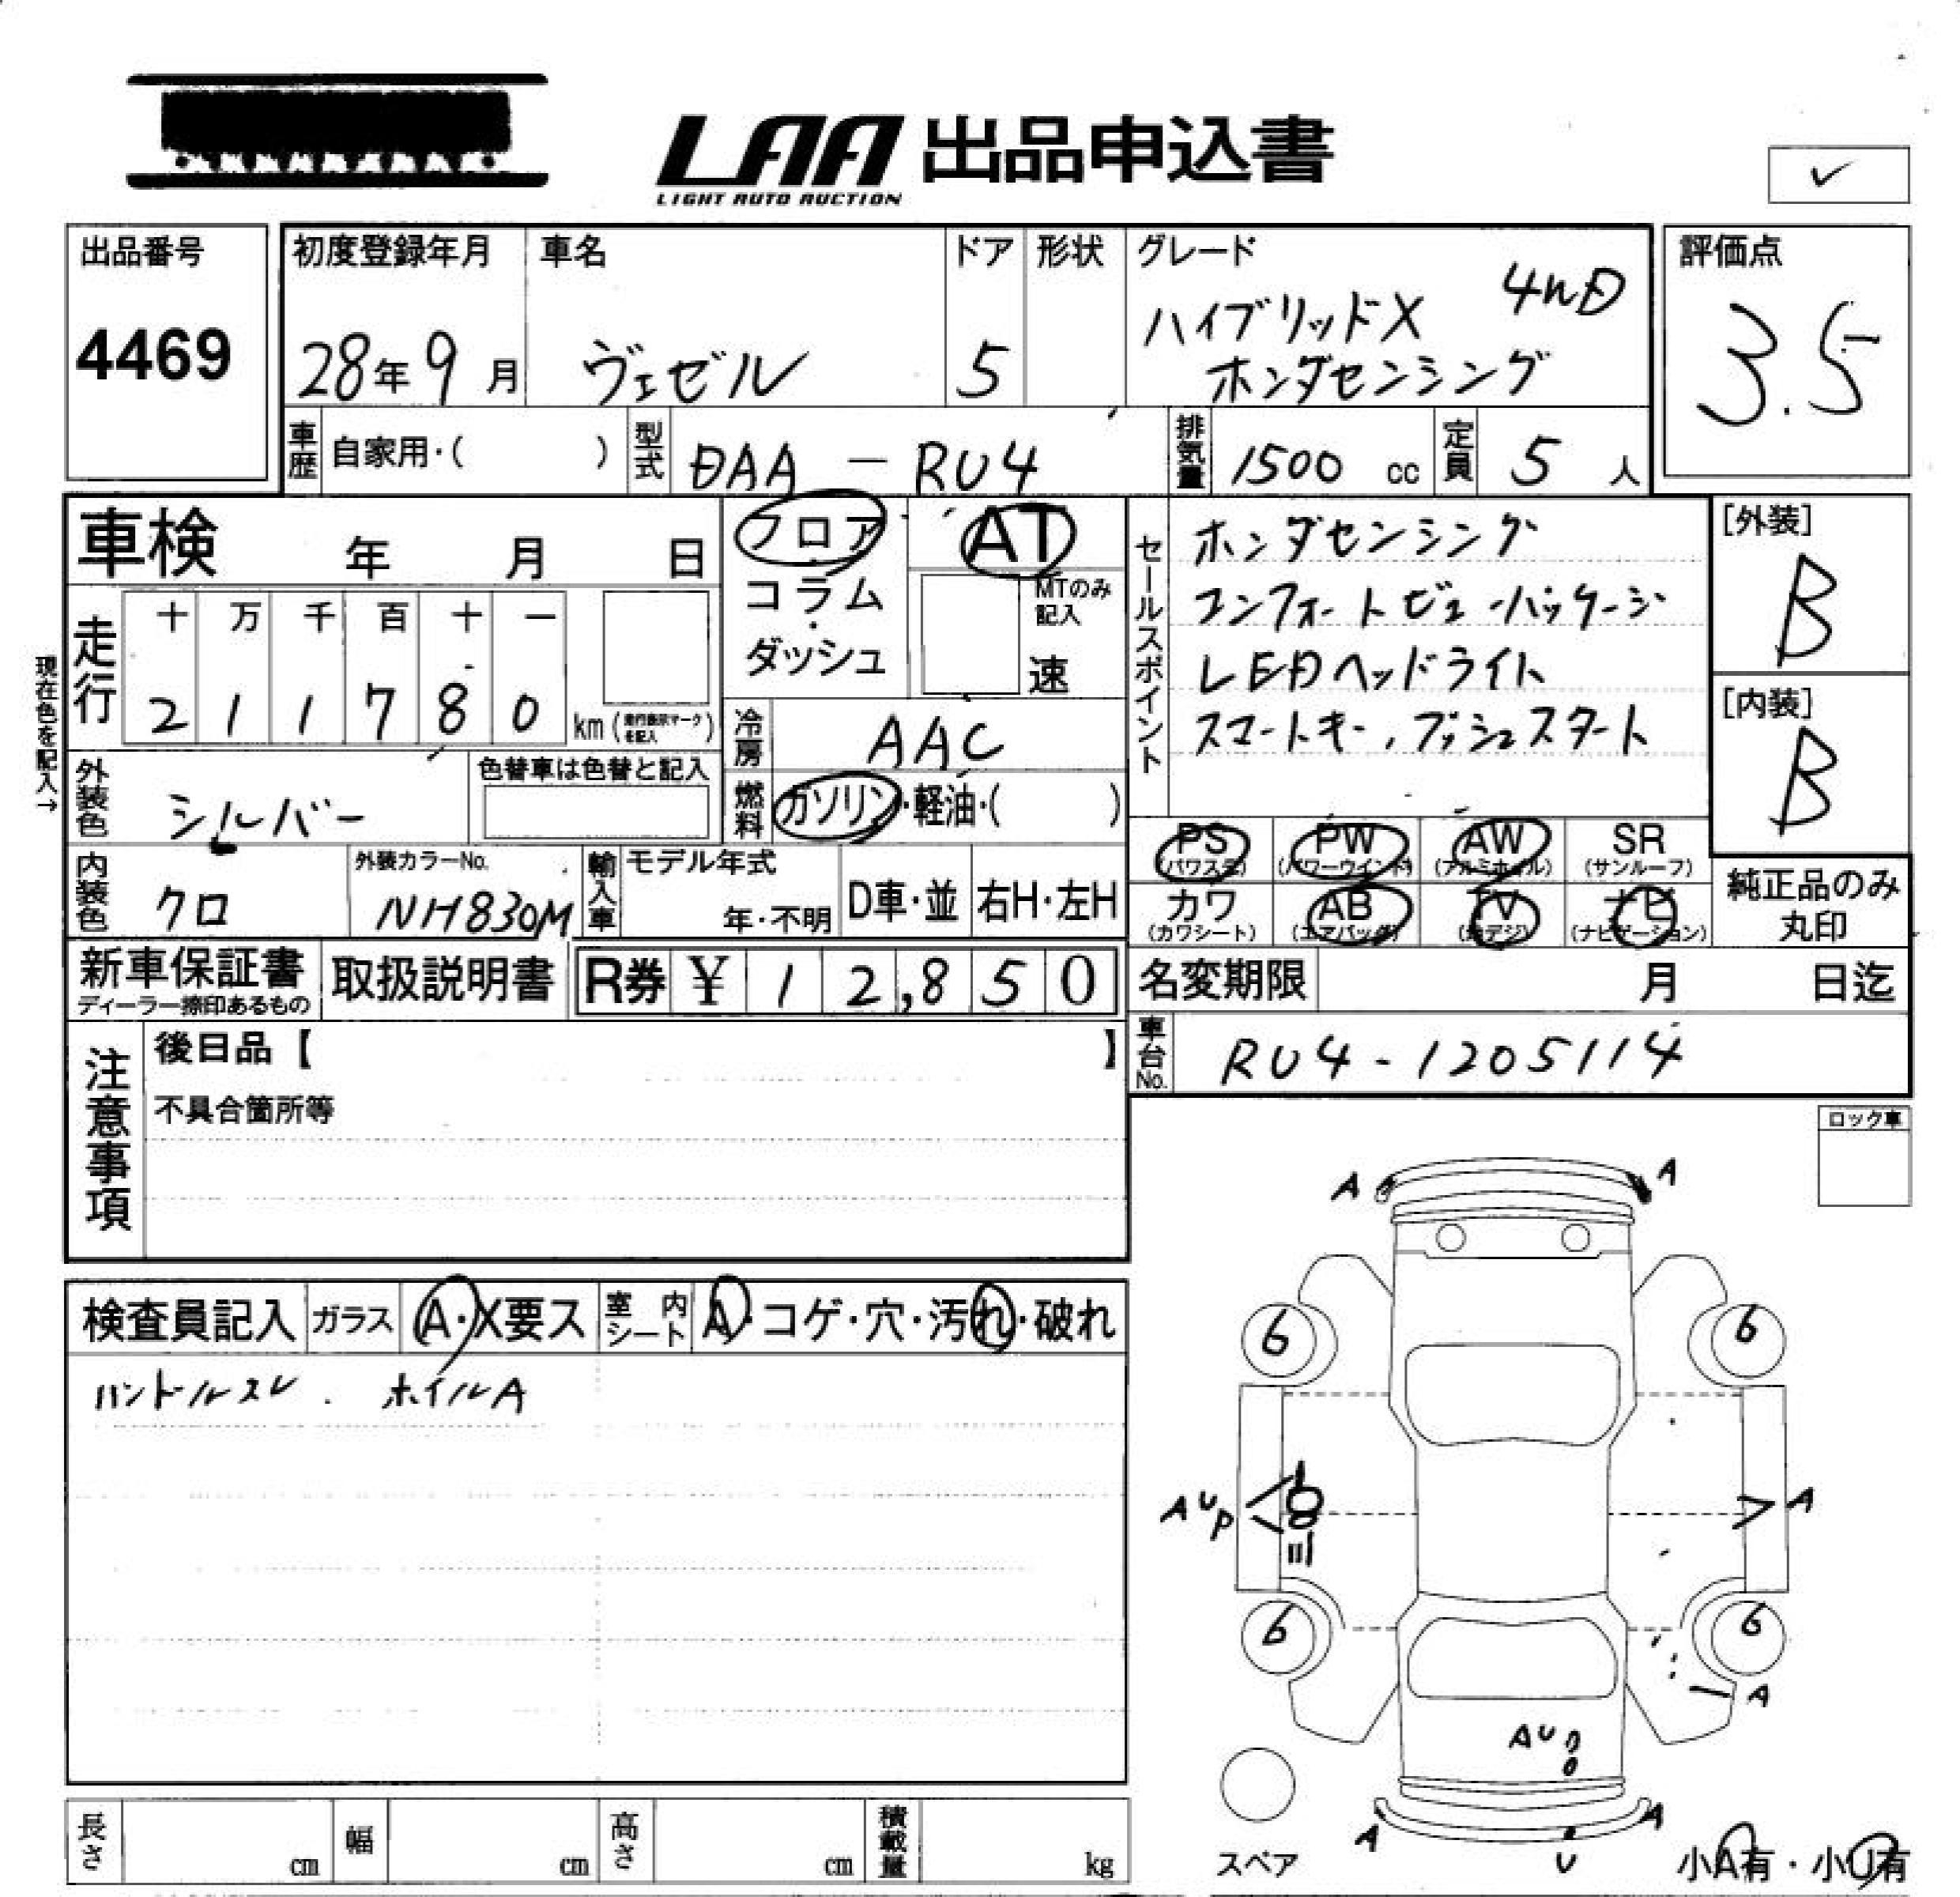 LAA 出品申込書
LIGHT AUTO AUCTION
出品番号
4469
初度登録年月
28年9月
車名
ヴェゼル
ドア
5
形状
グレード
ハイブリッドX 4WD
ホンダセンシング
評価点
3.5
車歴
自家用・( )
型式
DAA - RU4
排気量
1500 cc
定員
5 人
車検 年 月 日
フロア
コラム・
ダッシュ
AT
MTのみ
記入
速
セールスポイント
ホンダセンシング
コンフォートビューパッケージ
LEDヘッドライト
スマートキー、プッシュスタート
[外装]
B
[内装]
B
現在色を記入→
走行
十 万 千 百 十 一
2 1 1 7 8 0
km (走行表示マークを記入)
冷房
AAC
燃料
ガソリン・軽油・( )
外装色
シルバー
色替車は色替と記入
内装色
クロ
外装カラーNo.
NH830M
輸入車
モデル年式
年・不明
D車・並
右H・左H
PS
(パワステ)
PW
(パワーウインド)
AW
(アルミホイル)
SR
(サンルーフ)
カワ
(カワシート)
AB
(エアバッグ)
TV
(地デジ)
ナビ
(ナビゲーション)
純正品のみ
丸印
新車保証書
ディーラー捺印あるもの
取扱説明書
R券 ¥ 12,850
名変期限 月 日迄
車台No.
RU4-1205114
注意事項
後日品【 】
不具合箇所等
ロック車
検査員記入
ガラス A・X要ス
室内シート A・コゲ・穴・汚れ・破れ
ハンドルスレ . ホイルA
A A
6 6
A U P
A
6 6
A
A U
A A
U
スペア
小A有・小U有
長さ cm
幅 cm
高さ cm
積載量 kg